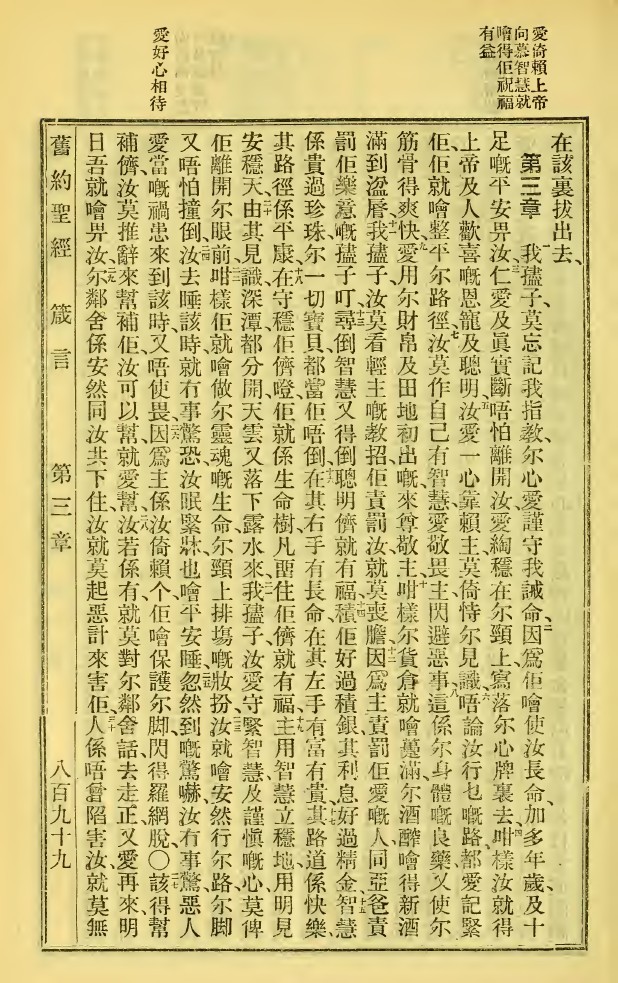 愛倚賴上帝
向慕智慧就
噲得佢祝福
有益
愛好心相待
在該裏拔出去、
第三章 一我𢼛子、莫忘記我指教、尔心愛謹守我誡命、二因爲佢噲使汝長命、加多年歲、及十
足嘅平安畀汝、三仁愛及眞實、斷唔怕離開汝、愛綯穩在尔頸上、寫落尔心牌裏去、四咁樣汝就得
上帝及人歡喜嘅恩寵、及聰明、五汝愛一心靠賴主、莫倚恃尔見識、六唔論汝行乜嘅路、都愛記緊
佢、佢就噲整平尔路徑、七汝莫作自己有智慧、愛敬畏主、閃避惡事、八這係尔身體嘅良藥、又使尔
筋骨得爽快、九愛用尔財帛、及田地初出嘅來尊敬主、十咁樣尔貨倉就噲滿、尔酒醡噲得新酒
滿到溢脣、十一我子、汝莫看輕主嘅教招、佢責罰汝、就莫喪膽、十二因爲主責罰佢愛嘅人、同亞爸責
罰佢樂意嘅子、十三叮尋倒智慧、又得倒聰明儕、就有福、十四積佢好過積銀、其利息好過精金、十五智慧
係貴過珍珠、尔一切寶貝、都當佢唔倒、十六在其右手有長命、在其左手有富有貴、十七其路道係快樂、
其路徑係平康、十八在守穩佢儕嚟、佢就係生命樹、凡住佢儕就有福、十九主用智慧立穩地、用明見
安穩天、二十由其見識、深潭都分開、天雲又落下露水來、二一我子、汝愛守緊智慧及謹愼嘅心、莫俾
佢離開尔眼前、二二咁樣佢就噲做尔靈魂嘅生命、尔頸上排塲嘅妝扮、二三汝就噲安然行尔路、尔脚
又唔怕撞倒、二四汝去睡該時、就冇事驚恐、汝眠緊牀、也噲平安睡、二五忽然到嘅驚嚇、汝冇事驚、惡人
愛當嘅禍患來到該時、又唔使畏、二六因爲主係汝倚賴个、佢噲保護尔脚、閃得羅網脫、〇二七該得幫
補儕、汝莫推辭來幫補佢、汝可以幫、就愛幫、二八汝若係有、就莫對尔鄰舍話、去走正又愛再來、明
日吾就噲畀汝、二九尔鄰舍係安然同汝共下住、汝就莫起惡計來害佢、三十人係唔曾陷害汝、就莫無
舊約聖經 箴言 第三章 八百九十九